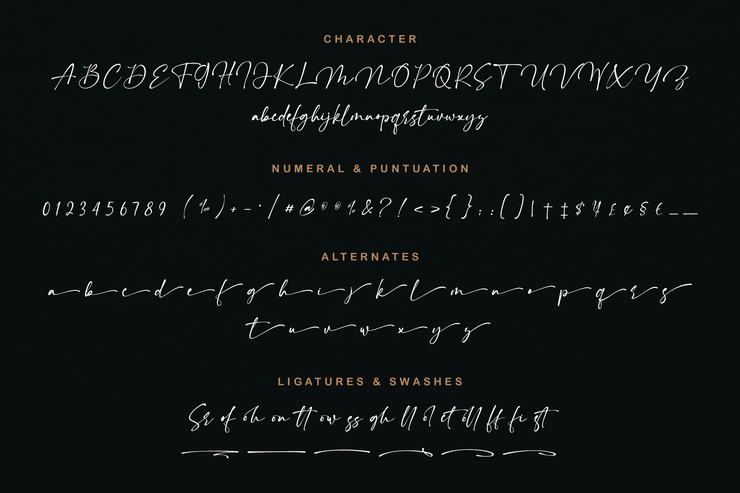 CHARACTER
ABCDEFGHIJKLMNOPQRSTUVWXYZ
abcdefghijklmnopqrstuvwxyz
NUMERAL & PUNTUATION
0123456789 (‰)+-·/#@®©%&?!<>{}:;[]|†‡$¥£¢§€__
ALTERNATES
a b c d e f g h i j k l m n o p q r s
t u v w x y z
LIGATURES & SWASHES
Sr of oh on tt ow ss gh ll ol et ff fi